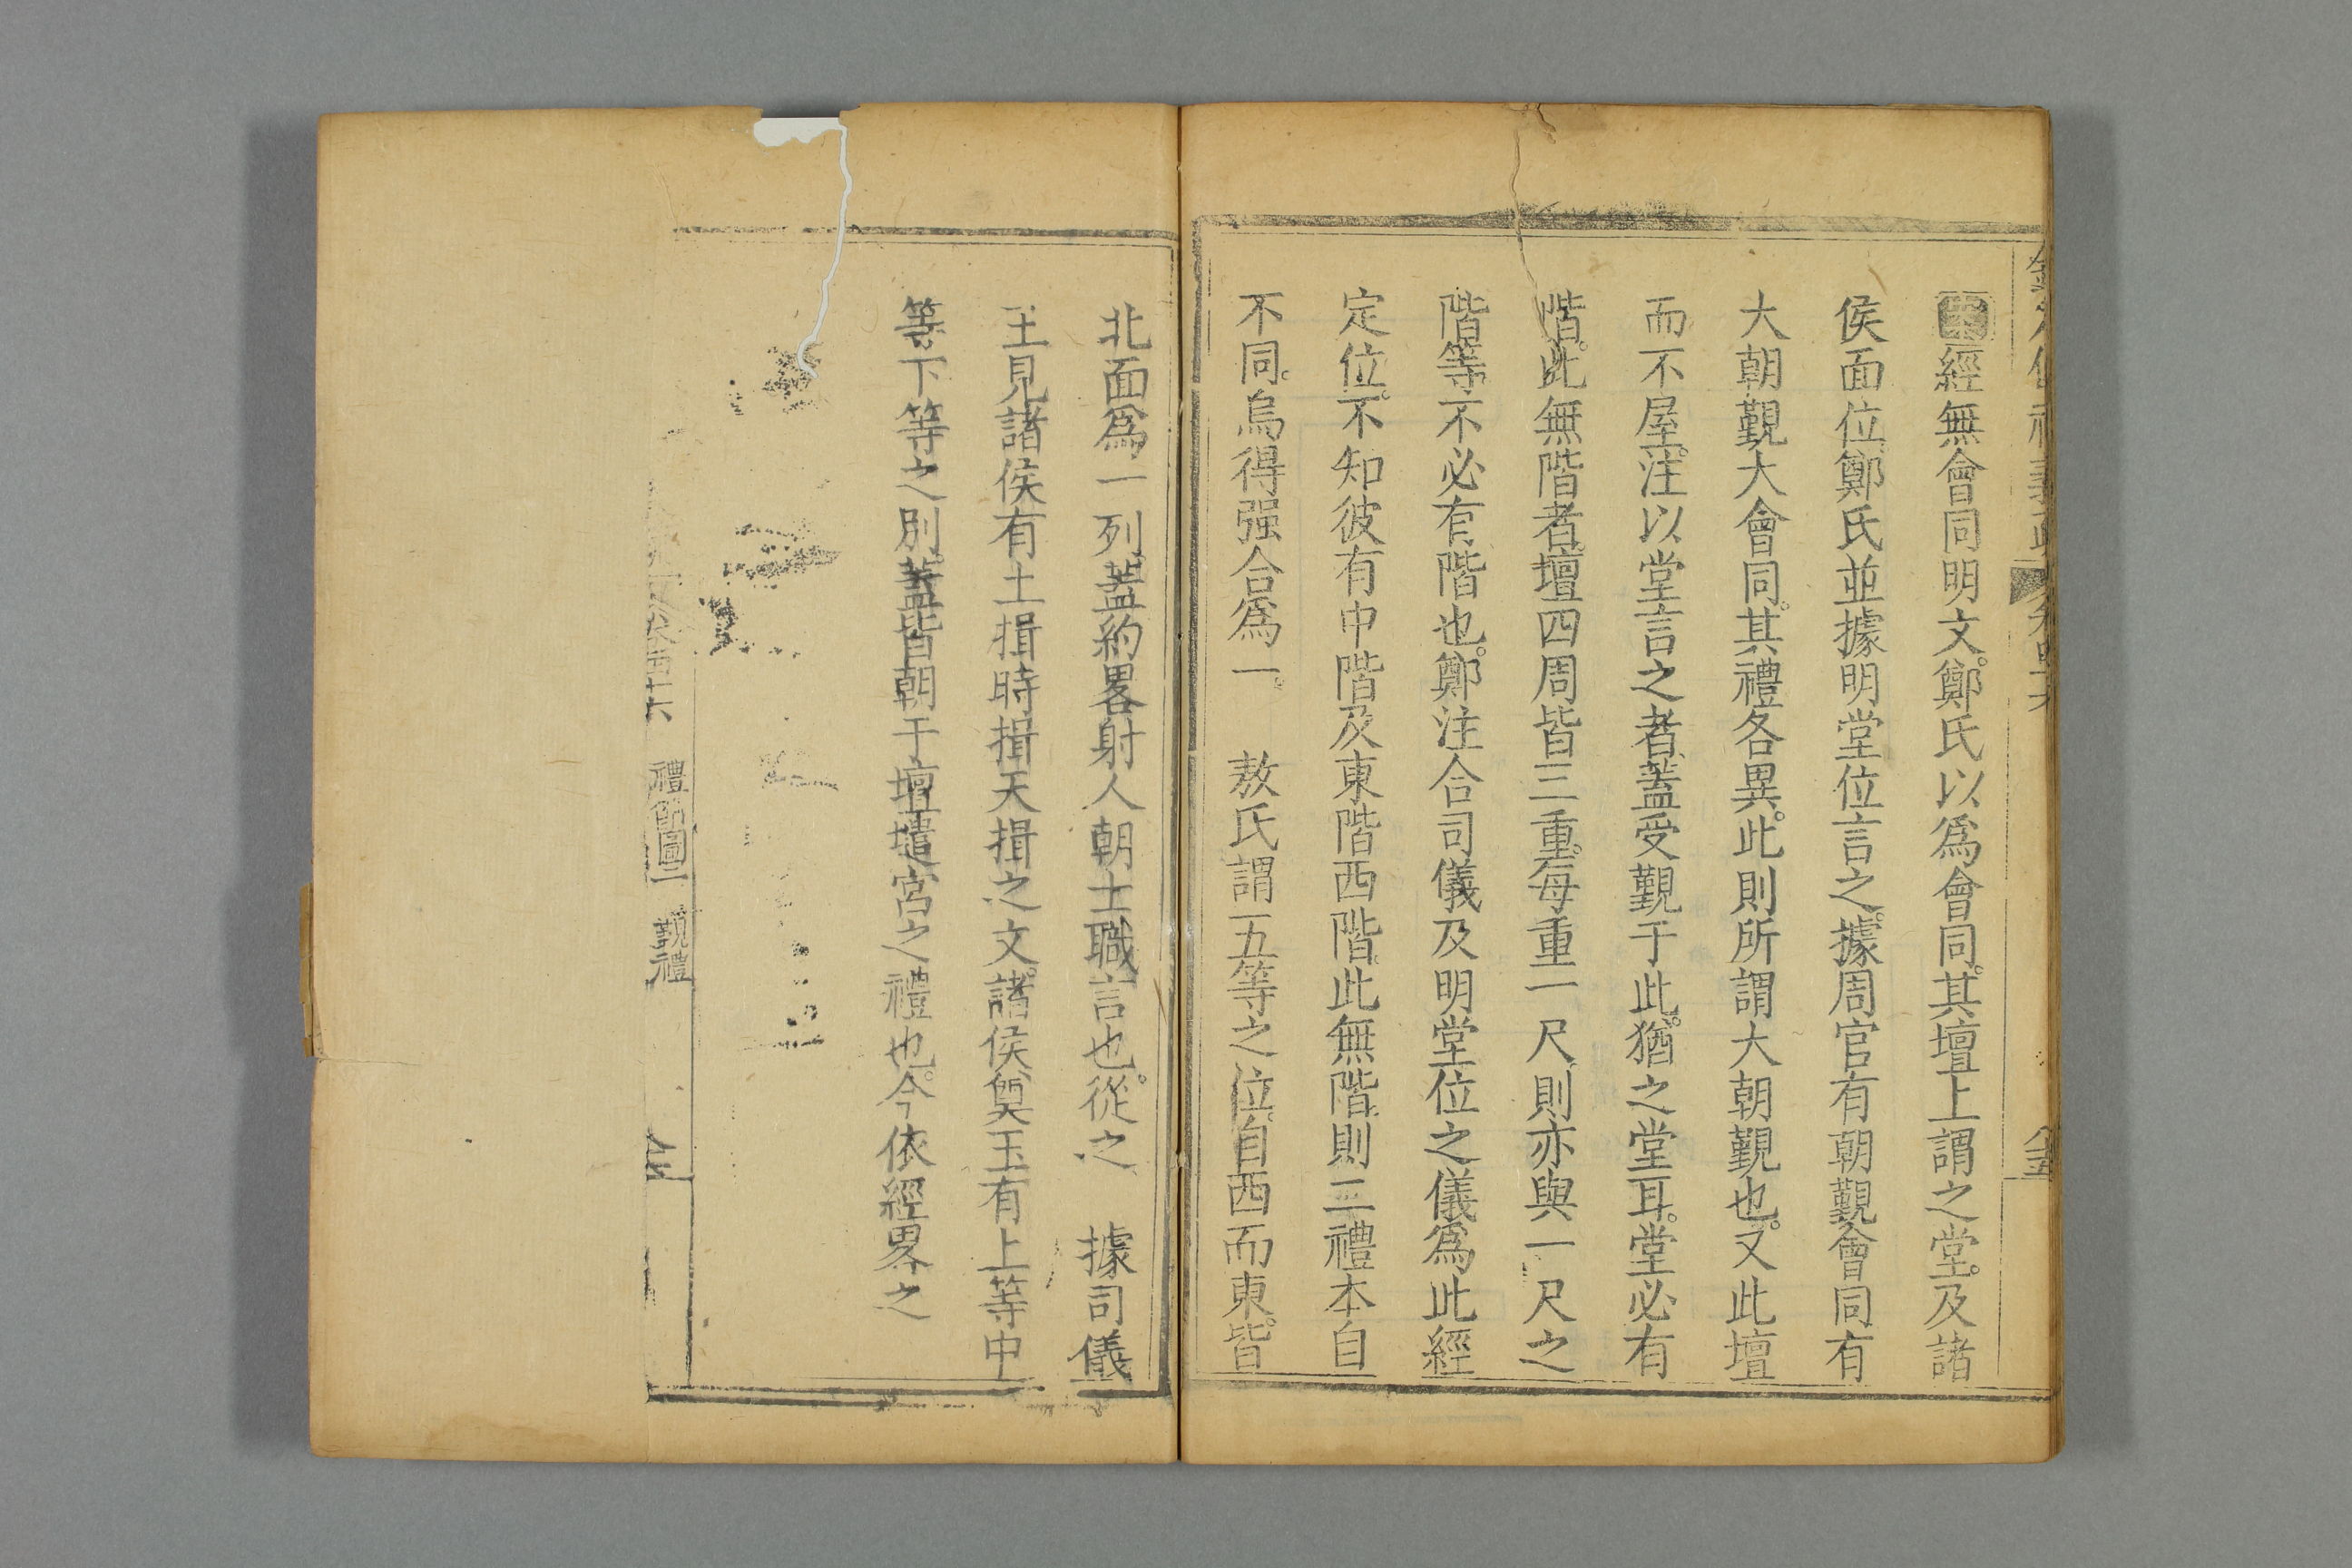 經無會同明文。鄭氏以爲會同。其壇上謂之堂。及諸
侯面位。鄭氏並據明堂位言之。據周官有朝覲會同有
大朝覲大會同。其禮各異。此則所謂大朝覲也。又此壇
而不屋。注以堂言之者、蓋受覲于此。猶之堂耳。堂必有
階。此無階者。壇四周皆三重。每重一尺、則亦與一尺之
階等。不必有階也。鄭注合司儀及明堂位之儀爲此經
定位。不知彼有中階及東階西階。此無階。則三禮本自
不同。烏得强合爲一。 敖氏謂五等之位。自西而東。皆
北面爲一列。蓋約畧射人朝士職言也。從之 據司儀
王見諸侯有土揖時揖天揖之文。諸侯奠玉有上等中
等下等之別。蓋皆朝于壇壝宮之禮也。今依經畧之
禮節圖二 覲禮